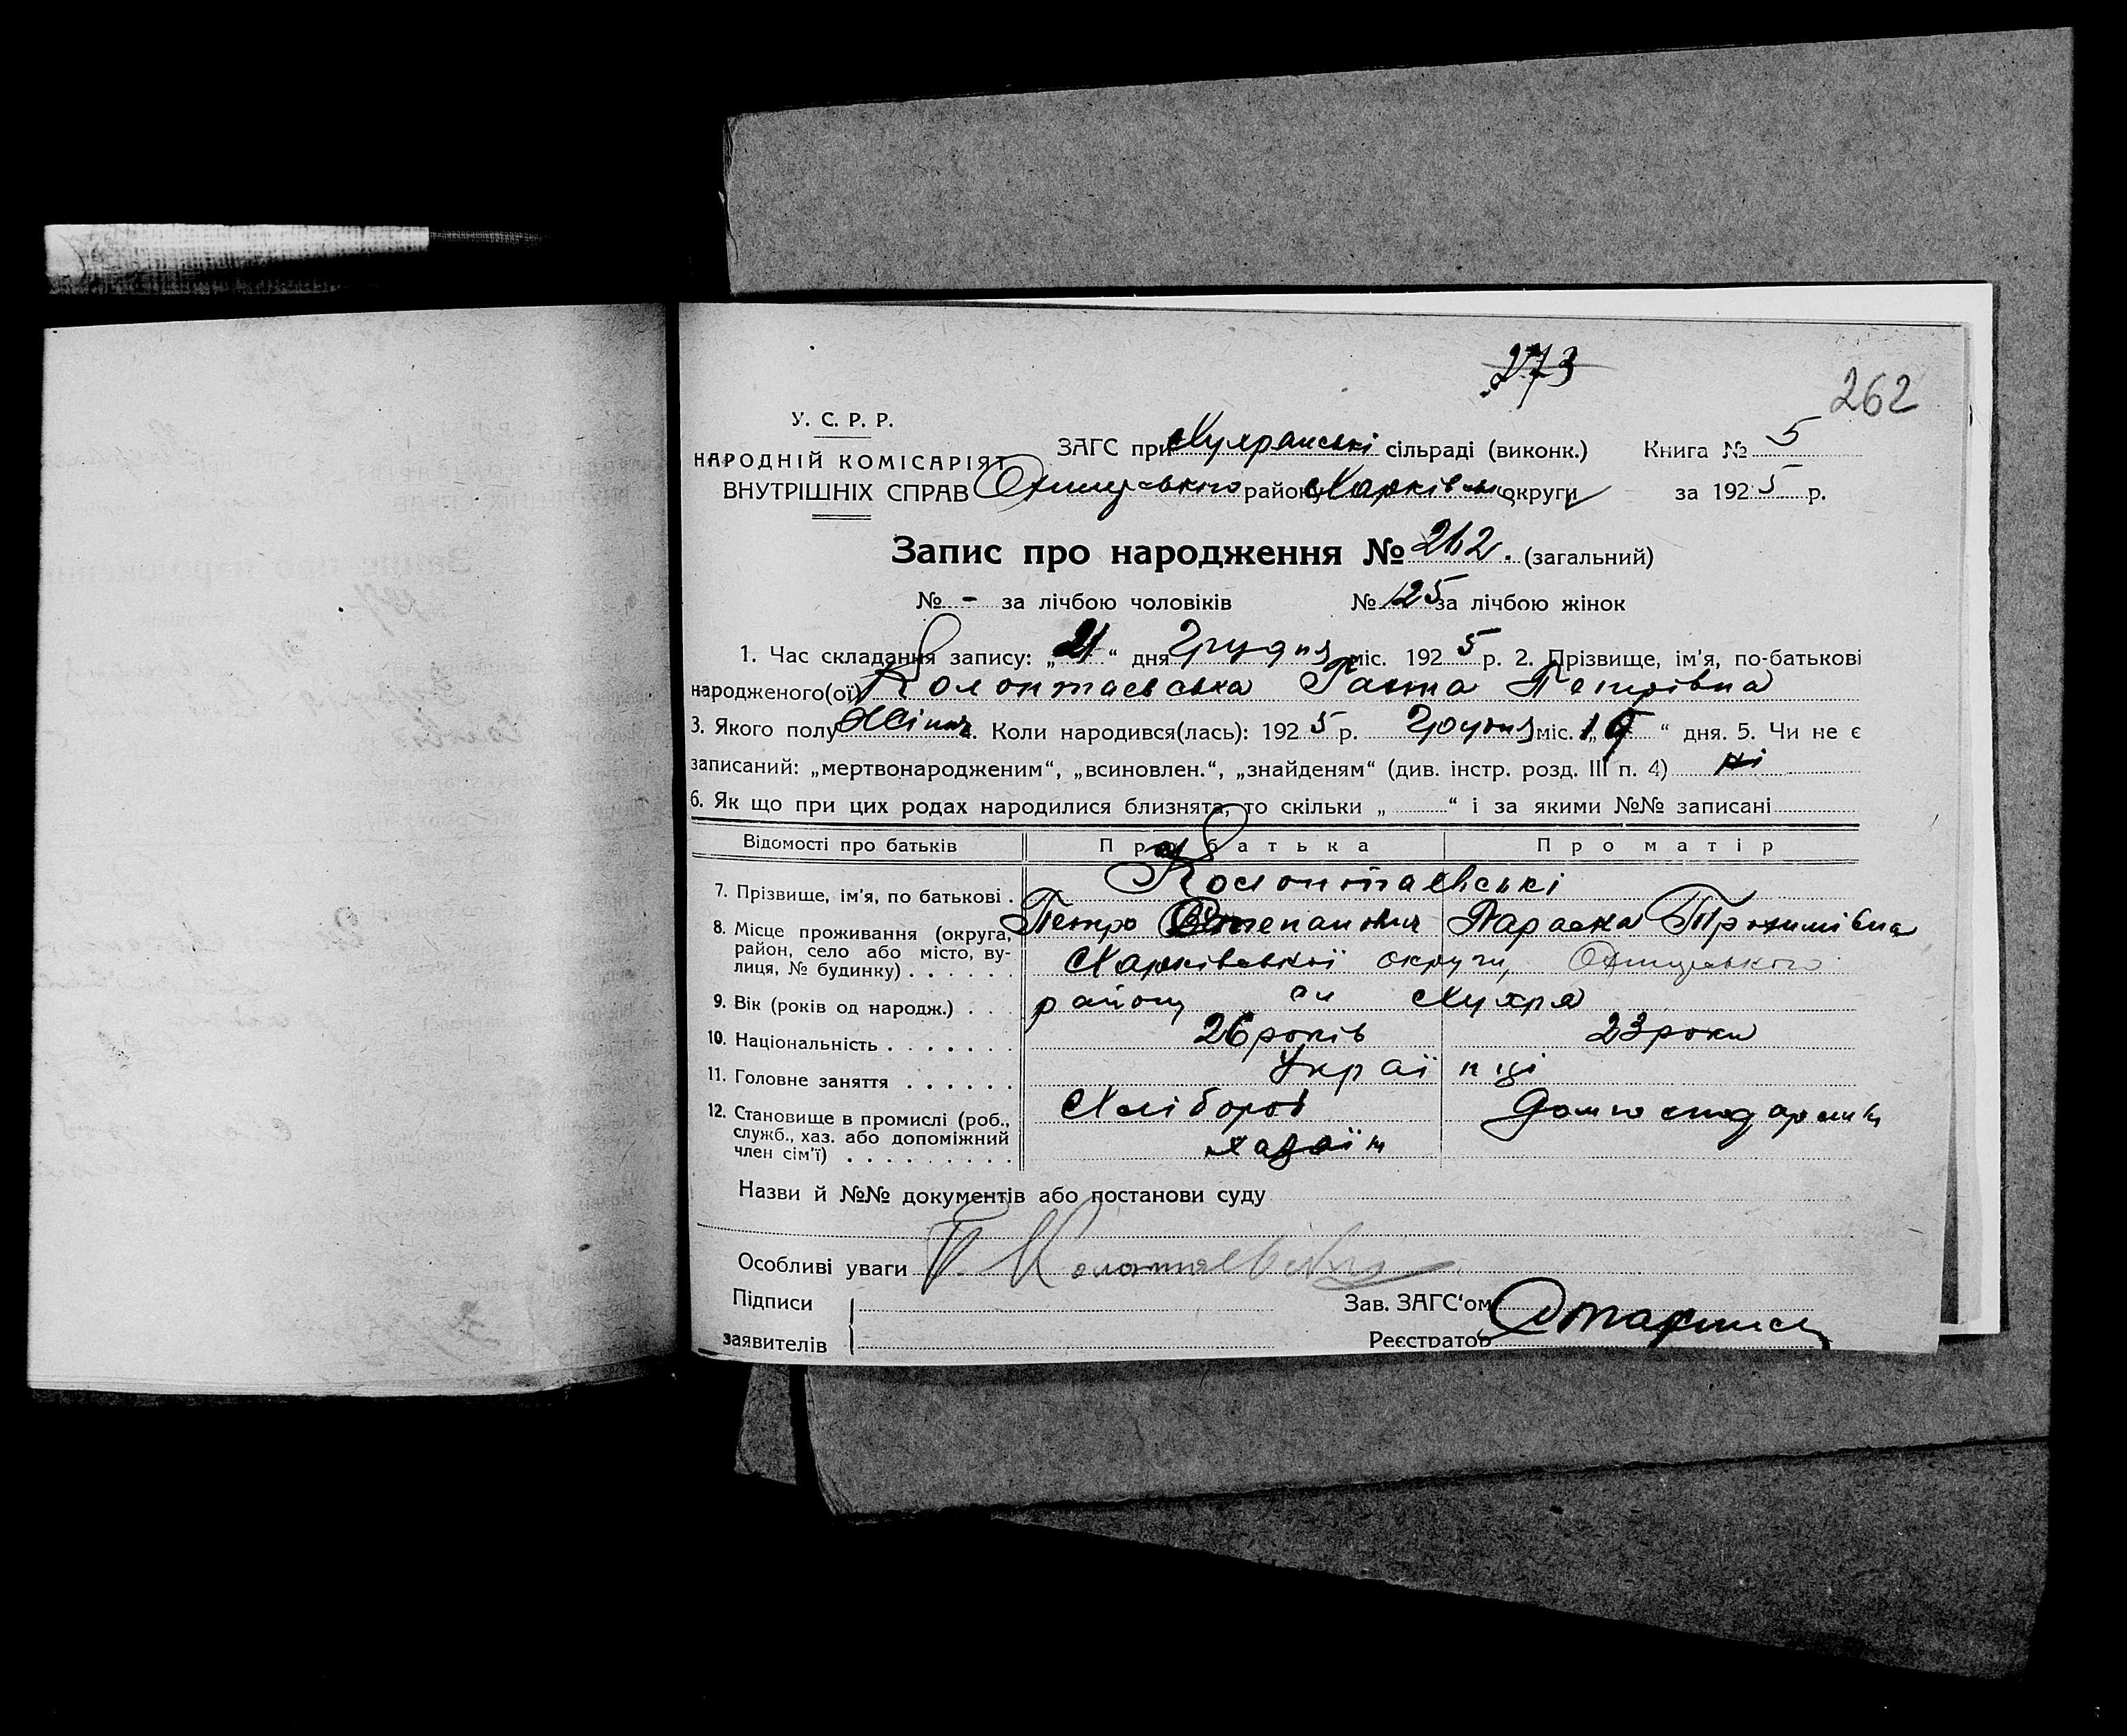 273
262
У. С. Р. Р.
НАРОДНІЙ КОМІСАРІЯТ
ВНУТРІШНІХ СПРАВ
ЗАГС при Хухранські сільраді (виконк.) Книга № 5
Охтирського району Харківсько округи за 1925 р.
Запис про народження № 262. (загальний)
№ - за лічбою чоловіків № 125 за лічбою жінок
1. Час складання запису: „21“ дня Грудня міс. 1925 р. 2. Прізвище, ім'я, по-батькові
народженого(ої) Колонтаєвська Ганна Петрівна
3. Якого полу Жіноч. 4. Коли народився(лась): 1925 р. Грудня міс. „19“ дня. 5. Чи не є
записаний: „мертвонародженим“, „всиновлен.“, „знайденям“ (див. інстр. розд. III п. 4) ні
6. Як що при цих родах народилися близнята, то скільки „ “ і за якими №№ записані
Відомості про батьків Про батька Про матір
7. Прізвище, ім'я, по батькові . Колонтаєвські
Петро Степанович Параска Трохимівна
8. Місце проживання (округа,
район, село або місто, ву-
лиця, № будинку) . . . . . . Харківської округи, Охтирського
району сл Хухря
9. Вік (років од народж.) . . . 26 років 23 роки
10. Національність . . . . . . . Українці
11. Головне заняття . . . . . . Хлібороб Домгосподарниц
12. Становище в промислі (роб.,
служб., хаз. або допоміжний
член сім'ї) . . . . . . . . . хазяїн
Назви й №№ документів або постанови суду
Особливі уваги П. Колонтаєвский
Підписи
заявителів
Зав. ЗАГС'ом
Реєстратор